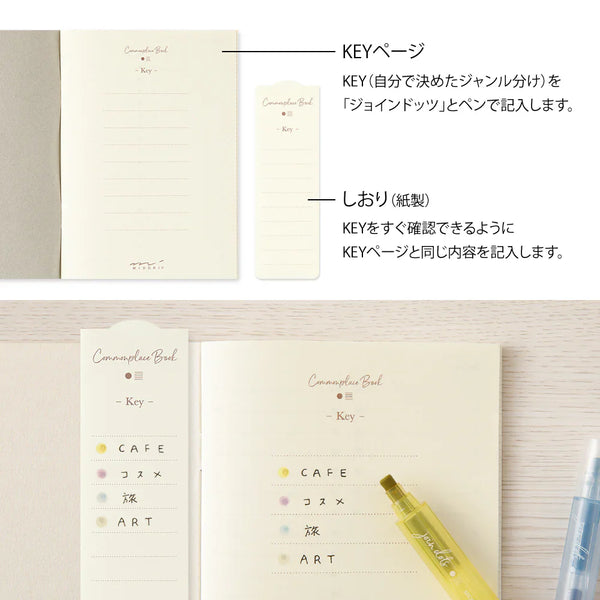 Commonplace Book
– Key –
MIDORI
KEYページ
KEY（自分で決めたジャンル分け）を
「ジョインドッツ」とペンで記入します。
Commonplace Book
– Key –
しおり（紙製）
KEYをすぐ確認できるように
KEYページと同じ内容を記入します。
Commonplace Book
– Key –
CAFE
コスメ
旅
ART
Commonplace Book
– Key –
CAFE
コスメ
旅
ART
join dots